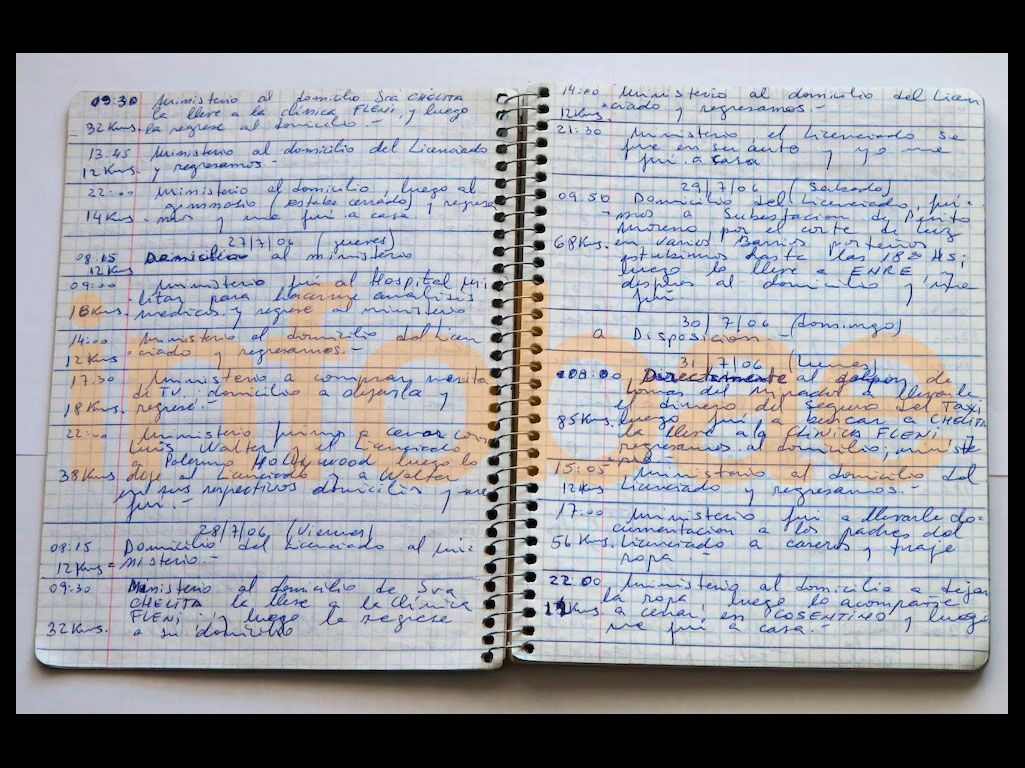 09:30 Ministerio al domicilio Sra CHELITA
la lleve a la clinica FLENI, y luego
32 Kms. la regrese al domicilio.-
13:45 Ministerio al domicilio del Licenciado
12 Kms. y regresamos.-
22:00 Ministerio al domicilio, luego al
gimnasio (estaba cerrado) y regresa
14 Kms. -mos y me fui a casa
27/7/06 (jueves)
08:15 Domicilio al ministerio
12 Kms
09:00 Ministerio fui al Hospital Mi
-litar para hacerme analisis
18 Kms. medicos y regrese al ministerio
14:00 Ministerio al domicilio del Licen
12 Kms -ciado y regresamos.-
17:30 Ministerio a comprar mesita
de TV. domicilio a dejarla y
18 Kms. regrese.-
22:00 Ministerio fuimos a cenar con
Luis Walter y el Licenciado
a Palermo HOLLYWOOD luego lo
38 Kms deje al Licenciado y a Walter
en sus respectivos domicilios y me
fui.-
28/7/06 (Viernes)
08:15 Domicilio del Licenciado al mi-
12 Kms- nisterio.-
09:30 Ministerio al domicilio de Sra
CHELITA la lleve a la Clinica
FLENI y luego la regrese
32 Kms. a su domicilio
14:00 Ministerio al domicilio del Licen
12 Kms. -ciado y regresamos.-
21:30 Ministerio, el Licenciado se
fue en su auto y yo me
fui a casa
29/7/06 (Sabado)
09:50 Domicilio del Licenciado, fui-
-mos a Subestacion de Perito
Moreno por el corte de luz
68 Kms. en varios Barrios porteños,
estubimos hasta las 18:00 HS;
luego lo lleve a ENRE, y
despues al domicilio y me
fui.-
30/7/06 (domingo)
a Disposicion
31/7/06 (Lunes)
08:00 Directamente al galpon de
del Mirador a llevarle
el dinero del seguro del TAXi
85 Kms. luego fui a buscar a CHELITA
la lleve a la CLiNiCA FLENi, y
regresamos al domicilio, ministe
15:05 Ministerio al domicilio del
12 Kms Licenciado y regresamos.-
17:00 Ministerio fui a llevarle do-
cumentacion a los padres del
56 Kms. Licenciado a caseros y traje
ropa.-
22:00 Ministerio al domicilio a dejar
la ropa, luego lo acompañe
Kms a cenar, en COSENTINO y luego
me fui a casa.-
infobae